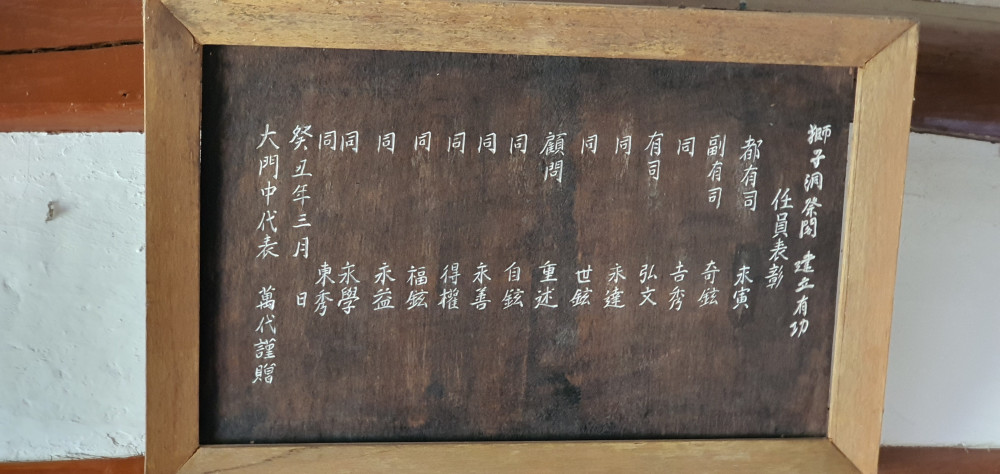 獅子洞祭閣 建立有功
任員表彰
都有司 永寅
副有司 奇鉉
同 吉秀
有司 弘文
同 永達
同 世鉉
顧問 重述
同 自鉉
同 永善
同 得權
同 福鉉
同 永益
同 永學
同 東秀
癸丑年三月 日
大門中代表 萬代謹贈